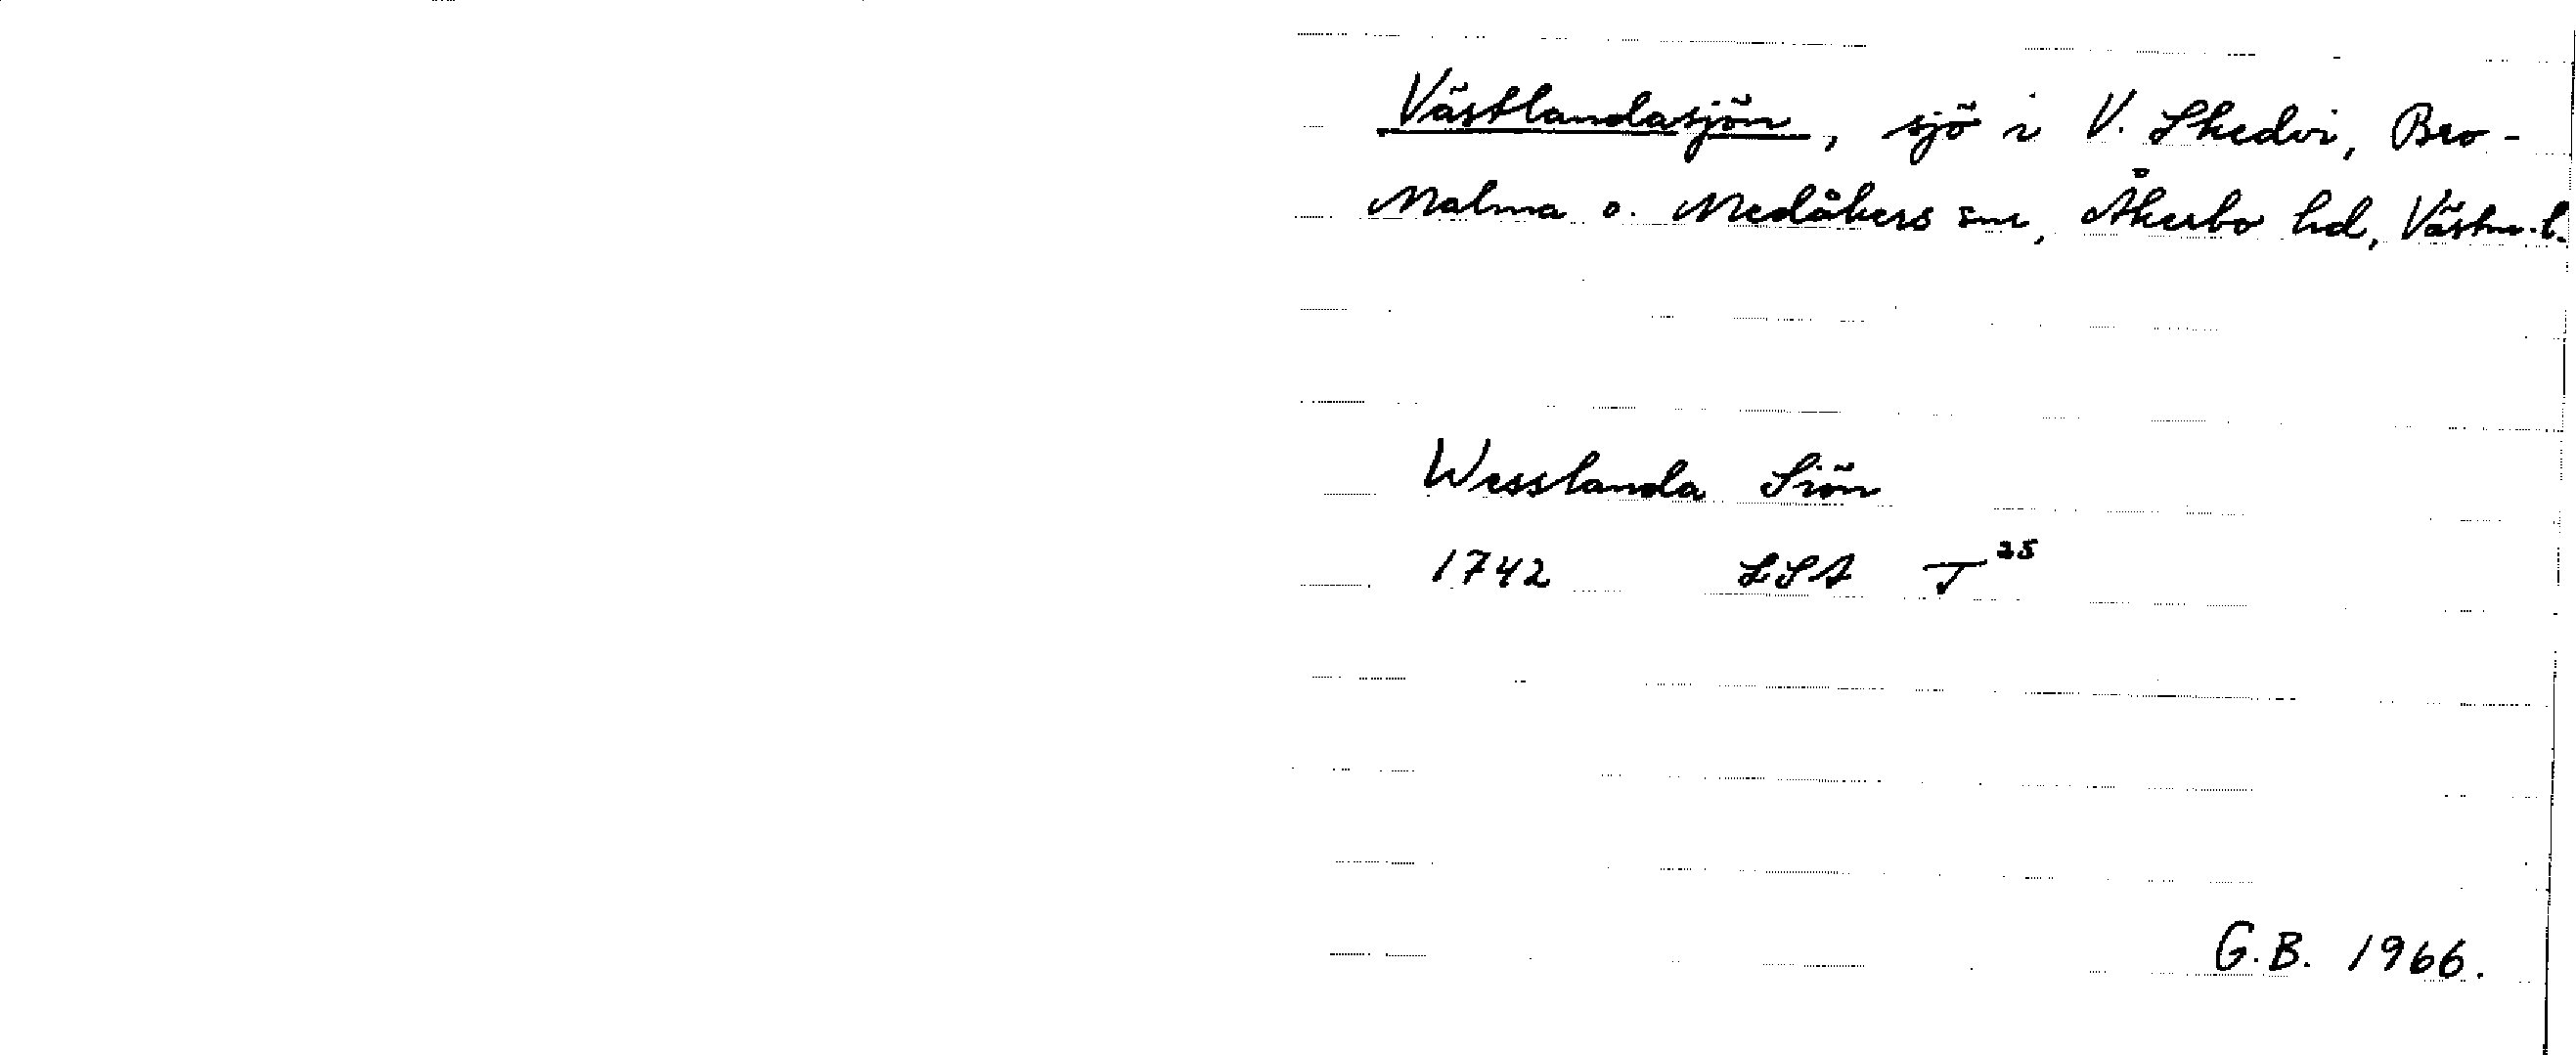 Västlandasjön, sjö i V. Skedvi, Bro-
Malma o. Medåkers snr, Åkerbo hd, Västm. l.
Wesslanda Siön
1742 LSA T 25
G.B. 1966.